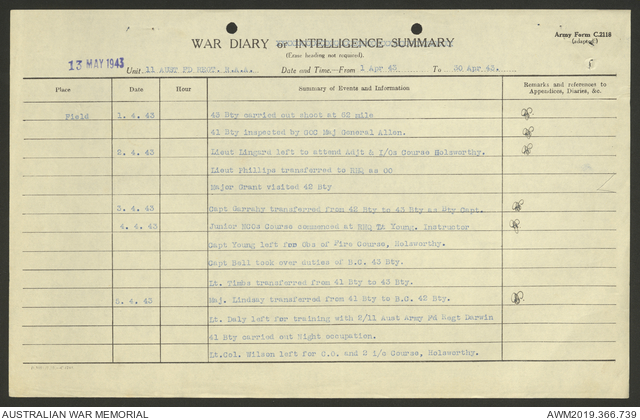 WAR DIARY or INTELLIGENCE SUMMARY
Army Form C.2118
(adapted)
(Erase heading not required).
13 MAY 1943
Unit 11 AUST FD REGT. R.A.A. Date and Time.—From 1 Apr 43 To 30 Apr 43.
Place Date Hour Summary of Events and Information Remarks and references to Appendices, Diaries, &c.
Field 1.4.43 42 Bty carried out shoot at 62 mile
41 Bty inspected by GOC Maj General Allen.
2.4.43 Lieut Lingard left to attend Adjt & I/Os Course Holsworthy.
Lieut Phillips transferred to RHQ as OO
Major Grant visited 42 Bty
3.4.43 Capt Garrahy transferred from 42 Bty to 43 Bty as Bty Capt.
4.4.43 Junior NCOs Course commenced at RHQ TA Young. Instructor
Capt Young left for Obs of Fire Course, Holsworthy.
Capt Bell took over duties of B.C. 43 Bty.
Lt. Timbs transferred from 41 Bty to 43 Bty.
5.4.43 Maj. Lindsay transferred from 41 Bty to B.C. 42 Bty.
Lt. Daly left for training with 2/11 Aust Army Fd Regt Darwin
41 Bty carried out Night occupation.
Lt.Col. Wilson left for C.O. and 2 i/c Course, Holsworthy.
AUSTRALIAN WAR MEMORIAL
AWM2019.366.739